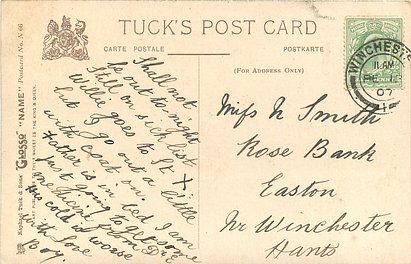 TUCK'S POST CARD
CARTE POSTALE
POSTKARTE
(For Address Only)
Glosso "NAME" Postcard No. N 66
Raphael Tuck & Sons'
ART PUBLISHERS TO THEIR MAJESTIES THE KING & QUEEN.
Shall not
be out to-night
Still on sick list
Willie goes to
but I go out a little
with coat on.
Father is in bed I am
just going to get some
medicine from Dr E
His cold is worse
with love
Boy
WINCHESTER
11 AM
DE
07
Miss N Smith
Rose Bank
Easton
Nr Winchester
Hants